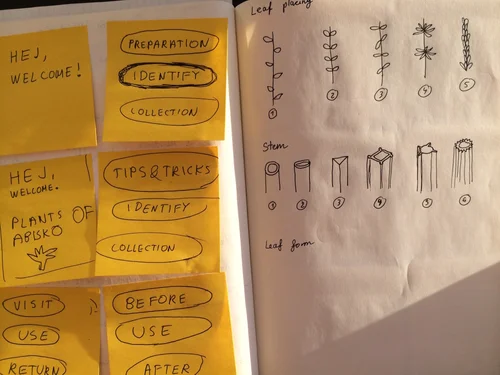 HEJ,
WELCOME!
PREPARATION
IDENTIFY
COLLECTION
HEJ,
WELCOME.
PLANTS OF
ABISKO
TIPS&TRICKS
IDENTIFY
COLLECTION
VISIT
USE
RETURN
BEFORE
USE
AFTER
Leaf placing
1
2
3
4
5
Stem
1
2
3
4
5
6
Leaf form